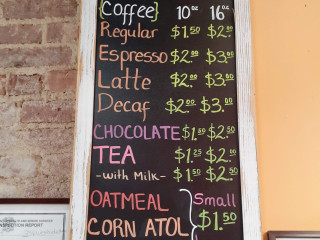 {Coffee} 10oz 16oz
Regular $1.50 $2.50
Espresso $2.00 $3.00
Latte $2.00 $3.00
Decaf $2.00 $3.00
CHOCOLATE $1.50 $2.50
TEA $1.25 $2.00
-with Milk- $1.50 $2.50
OATMEAL } Small
CORN ATOL $1.50
INSPECTION REPORT